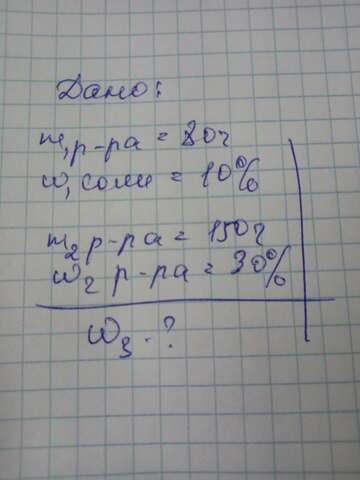 Дано:
m₁ р-ра = 80г
w, соли = 10%
m₂ р-ра = 150г
w₂ р-ра = 30%
W₃ - ?